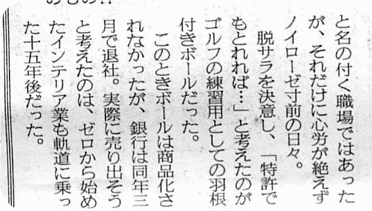 と名の付く職場ではあった
が、それだけに心労が絶えず
ノイローゼ寸前の日々。
脱サラを決意し、「特許で
もとれれば…」と考えたのが
ゴルフの練習用としての羽根
付きボールだった。
このときボールは商品化さ
れなかったが、銀行は同年三
月で退社。実際に売り出そう
と考えたのは、ゼロから始め
たインテリア業も軌道に乗っ
た十五年後だった。